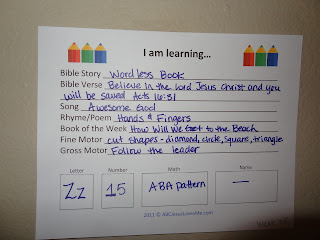 I am learning...
Bible Story Wordless Book
Bible Verse Believe in the lord Jesus Christ and you
will be saved Acts 16:31
Song Awesome God
Rhyme/Poem Hands & Fingers
Book of the Week How Will We Get to the Beach
Fine Motor cut shapes - diamond, circle, square, triangle
Gross Motor Follow the leader
Letter Number Math Name
Zz 15 ABA pattern —
2011 © AllCasonLovesMe.com